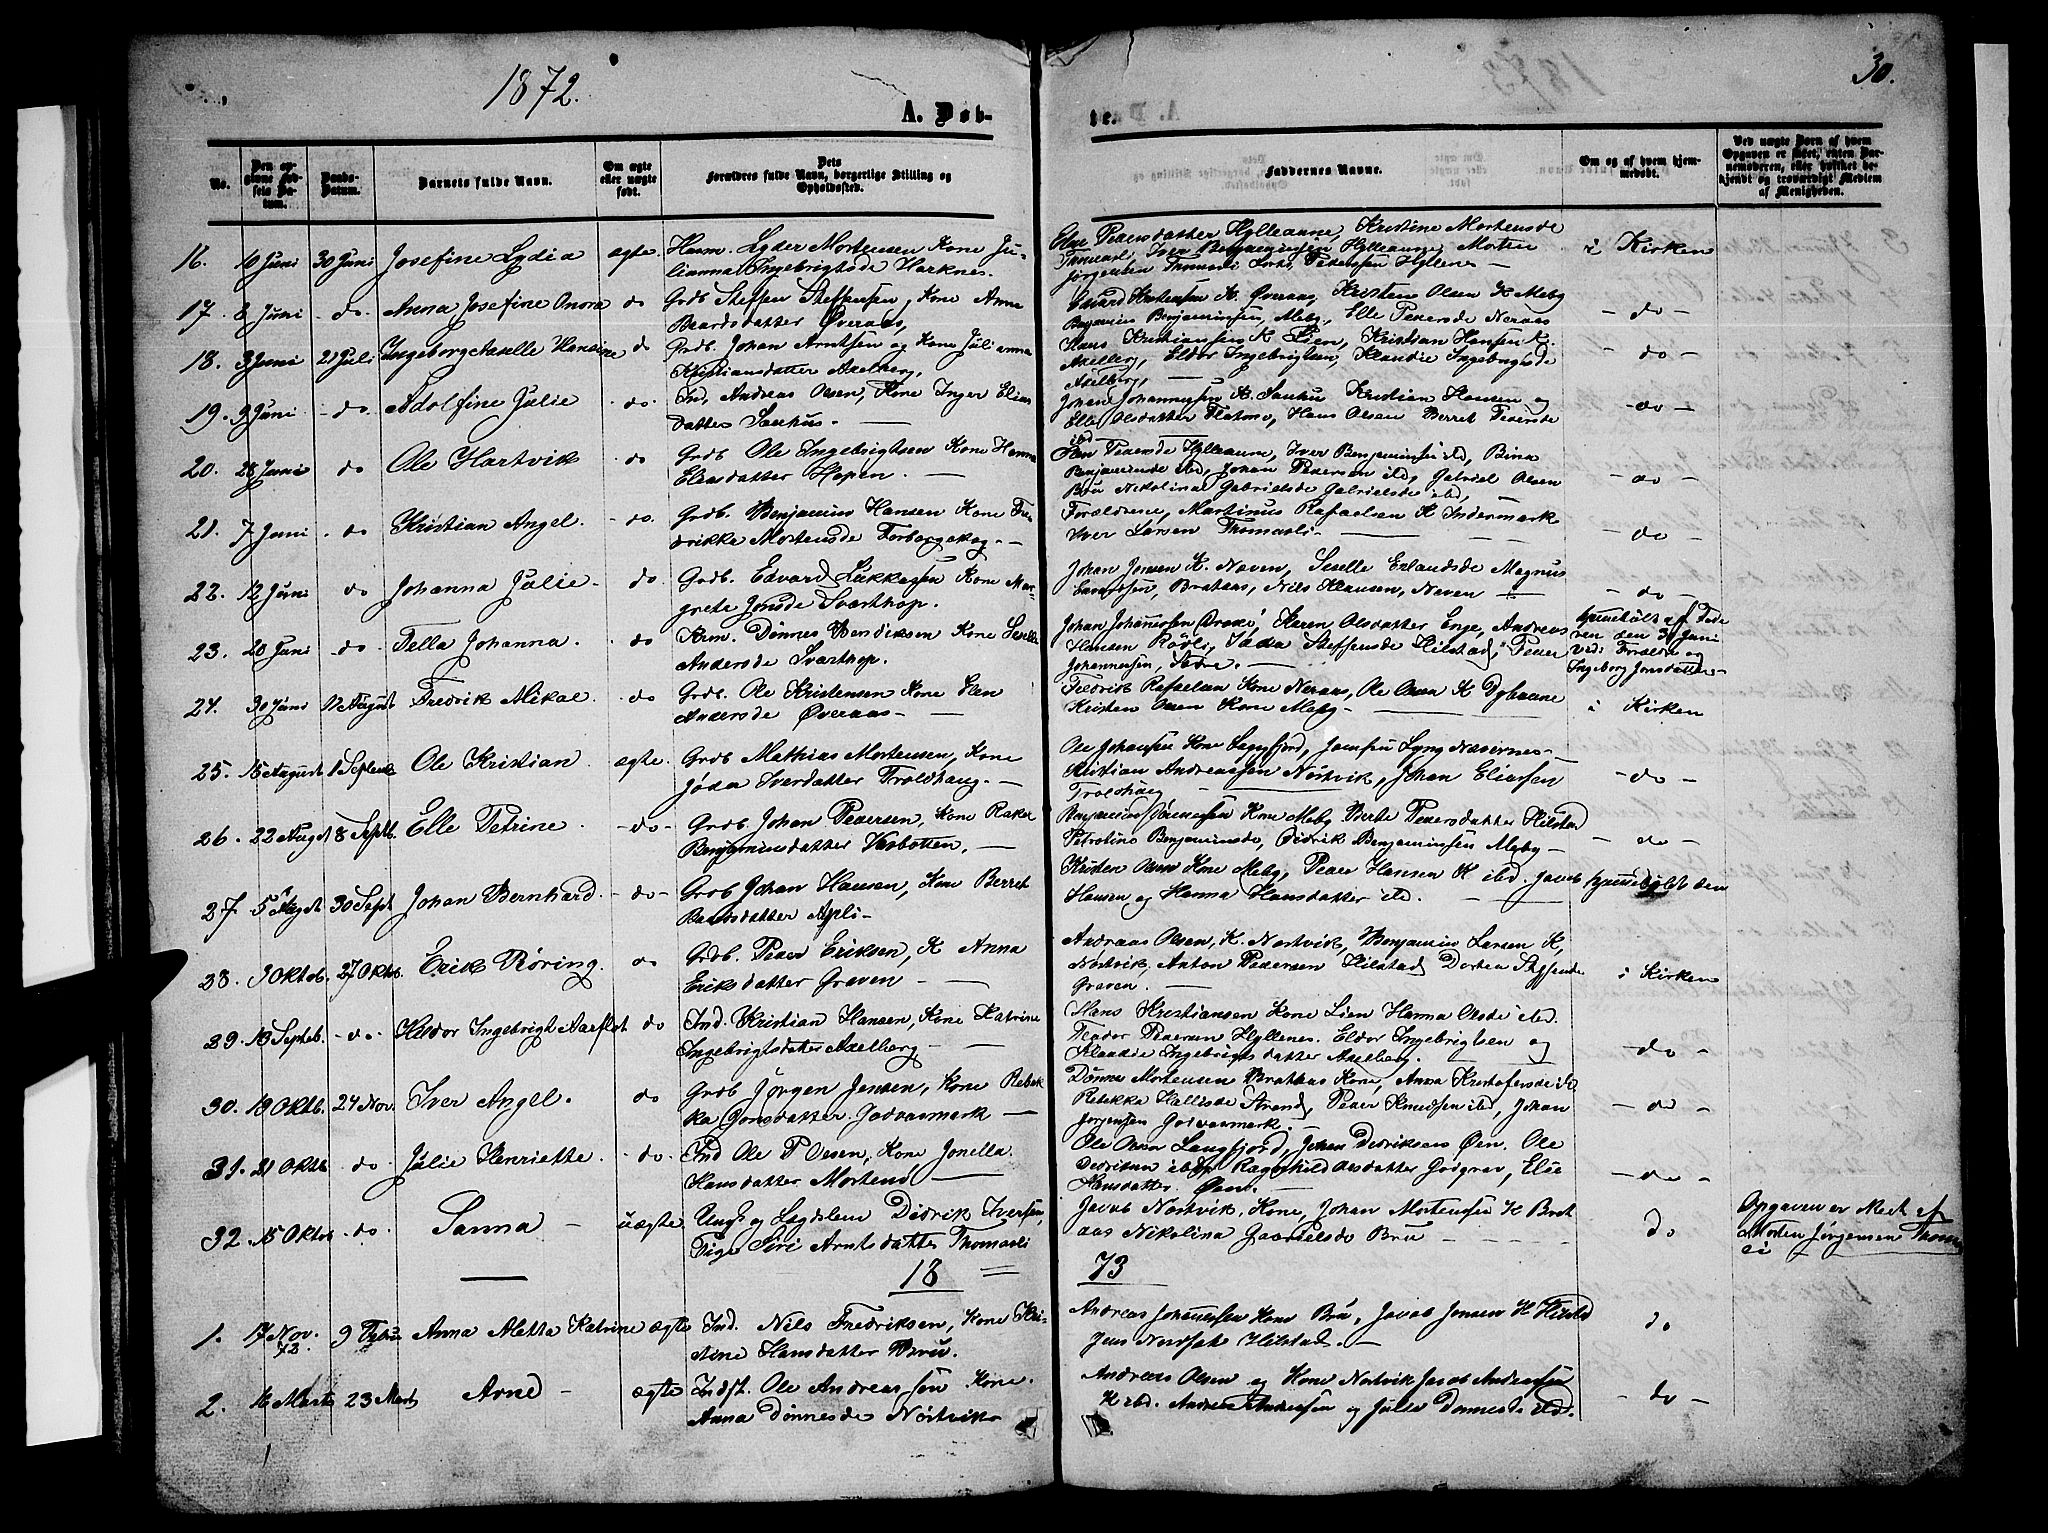 1872.
30.
A. Døb-
te.
No.
Den op-
givne Fød-
sels Da-
tum.
Daabs-
Datum.
Barnets fulde Navn.
Om ægte
eller uægte
født.
Dets
Forældres fulde Navn, borgerlige Stilling og
Opholdssted.
Faddernes Navne.
Om og af hvem hjem-
medøbt.
Ved uægte Børn af hvem
Opgaven er skeet, enten Bar-
nemoderen, eller hvilket be-
kjendt og troværdigt Medlem
af Menigheden.
16. 10 Juni 30 Juni Josefine Lydia ægte Huusm. Lyder Mortensen Kone Ju-
lianna Ingebrigtsde Harknes.
Pedersdatter Hylleaune, Kristine Mortensde
Thomasli, Iver Benjaminsen Hylleaune, Morten
Jørgensen Thomasli Pedersen Hyllenes
i Kirken
17. 8 Juni do. Anna Josefine Onora do Grdb Steffen Steffensen, Kone Anna
Baardsdatter Øveraas,
Edvard Kristensen K. Øveraas, Kristen Olsen K Moby
Benjamin Benjaminsen, Moby, Elle Pedersde Neraas
- do -
18. 3 Juni 21 Juli Ingeborg Anselle Hansine do Grdb. Johan Arntsen og Kone Julianna
Kristiansdatter Axelberg,
Hans Kristiansen K Lien, Kristian Hansen K.
Axelberg, Eldor Ingebrigtsen, Klaudie Ingebrigtsde
Axelberg,
do -
19. 9 Juni - do. Adolfine Julie do. Ind. Andreas Olsen, Kone Inger Elias
datter Sauhus.
Johan Johannessen K. Sauhus Kristian Hansen og
Elle Olsdatter Flatmo, Hans Olsen Berret Pedersde
ibd
- do -
20. 28 Juni do Ole Hartvik do Grdb Ole Ingebrigtsen Kone Hanna
Eliasdatter Hopen.
Pedersde Hylleaune, Iver Benjaminsen ibd, Bina
Benjaminsde ibd, Johan Pedersen ibd, Gabriel Olsen
Bru Nikolina Gabrielsde Gabrielsde ibd,
- do -
21. 7 Juni do Kristian Angel. do. Grdb. Benjamin Hansen Kone Fre
drikke Mortensde Forborgskog.
Forældrene, Martinus Rafaelsen K Indermark
Iver Larsen Thomasli
- do -
22. 12 Juni do Johanna Julie do Grdb. Edvard Lukkassen Kone Mar-
grete Jonsde Svarthop.
Johan Jensen K. Naven, Siselle Erlandsde Magnus
Brataas, Nils Klausen, Naven
- do -
23. 20 Juni do. Tella Johanna. do Krm. Dønnes Bendiksen Kone Siselle
Andersde Svarthop.
Johan Johannessen Brække, Karen Olsdatter Enge, Andreas
Hansen Rødli, Joda Steffensde Hilstad, Peder
Johannessen,
hjemmedøbt af Fade
ren den 30 Juni
Ved: Forældre og
Ingeborg Jonsdatter
24. 30 Juni 11 August Fredrik Mikal do Grdb. Ole Kristensen Kone Elen
Andersde Øveraas
Fredrik Rafaelsen Kone Neraas, Ole Olsen K
Kristen Olsen Kone Moby
i Kirken
25. 15 August 1 Septemb Ole Kristian ægte. Grdb Mathias Mortensen, Kone
Joda Iversdatter Troldhaug.
Ole Johansen Kone Lagfjord, Jonsen Lyng Navernes
Kristian Andreassen Nortvik, Johan Eliassen
Troldhaug
- do -
26. 22 Augst 8 Septb. Elle Petrine do Grdb Johan Pedersen, Kone Rakel
Benjaminsdatter Vesbotten.
Benjamin Kone Moby Berte Pedersdatter Hilstad
Petroline Benjaminsde, Didrik Benjaminsen Moby
- do -
27. 5 Augst 30 Sept Johan Bernhard. - do - Grdb Johan Hansen, Kone Berret
Apli
Kristen Olsen Kone Moby, Peder Hansen K ibd. Jacob
Hansen og Hanna Hansdatter ibd.
hjemmedøbt den
28. 9 Oktob. 27 Oktb. Erik Røring. do Grdb. Peder Eriksen, K Anna
Eriksdatter Graven
Andreas Olsen, K. Nortvik, Benjamin Larsen K,
Nortvik, Anton Pedersen Hilstad, Dortea Steffensde
Graven.
i Kirken
29. 19 Septeb. - do. Haldor Ingebrigt Aarflot do Ind. Kristian Hansen, Kone Katrine
Ingebrigtsdatter Axelberg
Hans Kristiansen Kone Lien Hanna Olsde ibd.
Teodor Pedersen Hyllenes. Eldor Ingebrigtsen og
Klaudie Ingebrigtsdatter Axelberg.
- do -
30. 19 Oktb. 24 Nov. Iver Angel. do Grdb Jørgen Jensen, Kone Rebek
ka Jonsdatter Godvasmark
Dønnes Mortensen Brataas Kone, Anna Kristofersde ibd
Rebekka Hallesde Strand, Peder Knudsen ibd, Johan
Jørgensen Godvasmark.
- do -
31. 21 Oktb do Julie Henriette. do. Ind Ole P Olsen, Kone Jonella
Hansdatter Mortend
Ole Olsen Langfjord, Johan Didriksen Øen. Ole
Didriksen ibd Ragnhild Olsdatter Godgrav, Else
Hansdatter Øen.
- do -
32. 15 Oktob - do. Sanna - uægte Ungk og Lægdslem Didrik Iversen,
Pige Siri Arntsdatter Thomasli
Jacob Nortvik, Kone, Johan Mortensen K Brat
aas Nikolina Gabrielsde Bru
do
Opgaven er skeet af
Morten Jørgensen Thomas
li
18 73
1. 17 Nov. 72. 9 Febru Anna Aletta Katrine ægte Ind. Nils Fredriksen, Kone Kri-
stine Hansdatter Bru.
Andreas Johannessen Kone Bru, Jacob Jensen K Hilstad
Jens Hilstad.
do
2. 16 Marts 23 Marts Arne - ægte Indst. Ole Andreassen Kone.
Anna Dønnesde Nortvik
Andreas Olsen og Kone Nortvik Jacob Andreassen
K ibd. Andreas Andersen og Julie Dønnesde ibd.
- do -